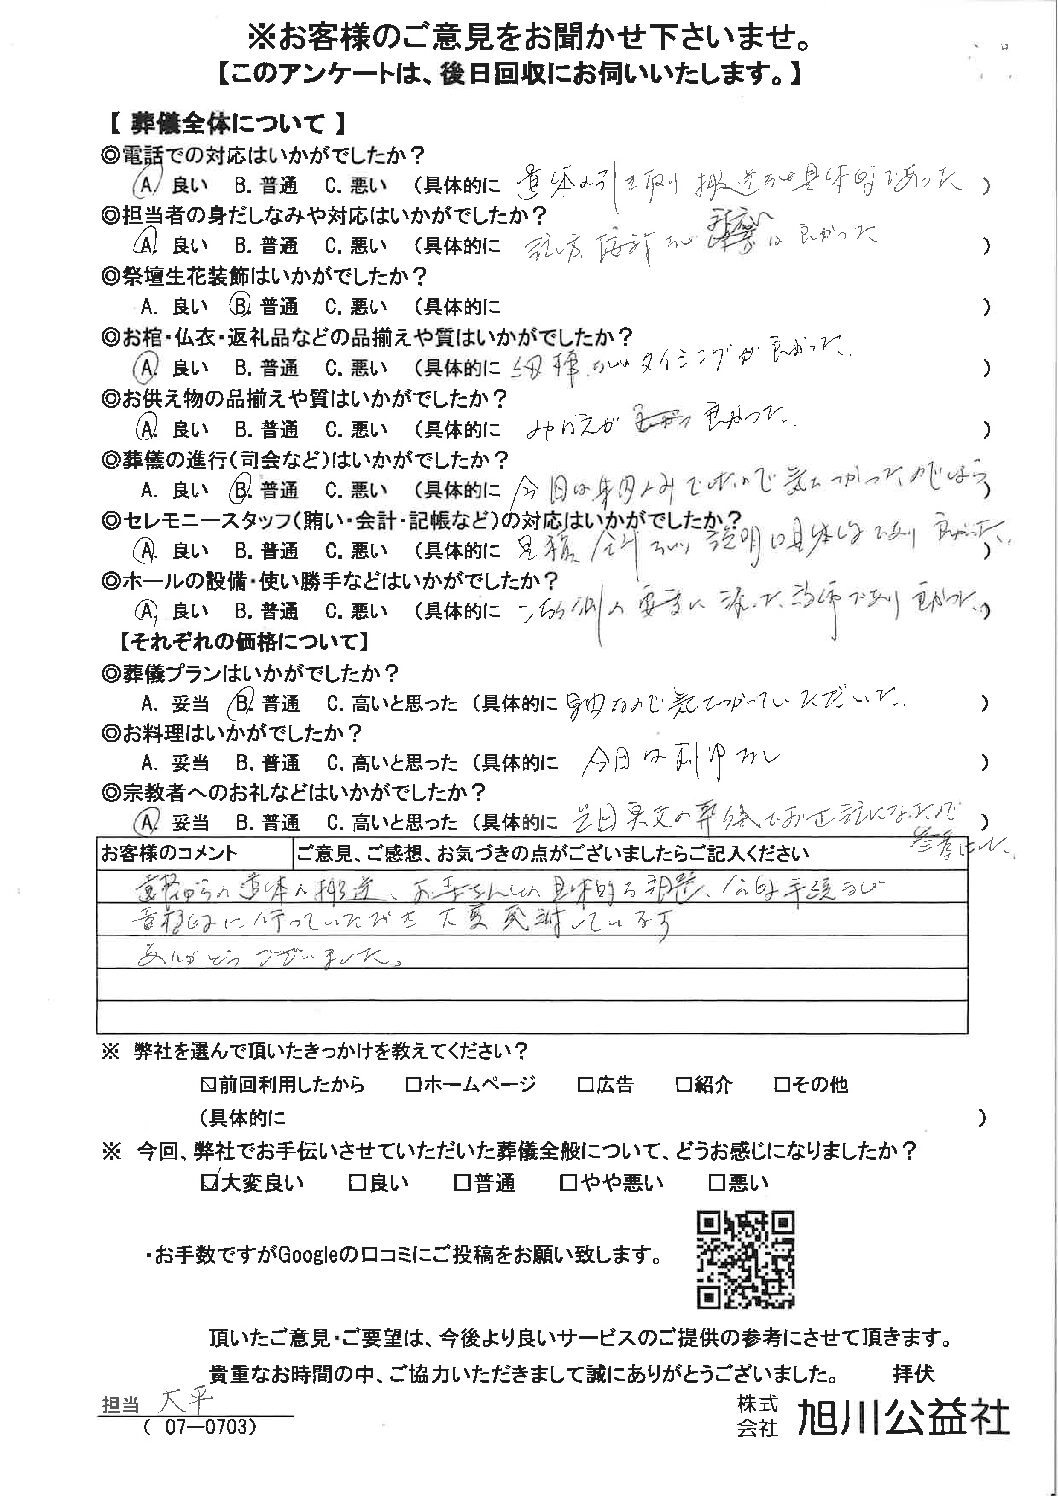 ※お客様のご意見をお聞かせ下さいませ。
【このアンケートは、後日回収にお伺いいたします。】
【 葬儀全体について 】
◎電話での対応はいかがでしたか？
A. 良い B. 普通 C. 悪い （具体的に 遺体の引き取り 搬送など具体的であった ）
◎担当者の身だしなみや対応はいかがでしたか？
A. 良い B. 普通 C. 悪い （具体的に は良かった ）
◎祭壇生花装飾はいかがでしたか？
A. 良い B. 普通 C. 悪い （具体的に ）
◎お棺・仏衣・返礼品などの品揃えや質はいかがでしたか？
A. 良い B. 普通 C. 悪い （具体的に タイミングが良かった。 ）
◎お供え物の品揃えや質はいかがでしたか？
A. 良い B. 普通 C. 悪い （具体的に 良かった。 ）
◎葬儀の進行（司会など）はいかがでしたか？
A. 良い B. 普通 C. 悪い （具体的に 今回は身内のみでしたので ）
◎セレモニースタッフ（賄い・会計・記帳など）の対応はいかがでしたか？
A. 良い B. 普通 C. 悪い （具体的に 見積、会計など 説明は具体的であり 良かった。 ）
◎ホールの設備・使い勝手などはいかがでしたか？
A. 良い B. 普通 C. 悪い （具体的に こちら側の要望に であり 良かった。 ）
【それぞれの価格について】
◎葬儀プランはいかがでしたか？
A. 妥当 B. 普通 C. 高いと思った （具体的に 身内なので ていただいた。 ）
◎お料理はいかがでしたか？
A. 妥当 B. 普通 C. 高いと思った （具体的に 今回は利用なし ）
◎宗教者へのお礼などはいかがでしたか？
A. 妥当 B. 普通 C. 高いと思った （具体的に の葬儀でお世話になったので ）
参考にした。
お客様のコメント ご意見、ご感想、お気づきの点がございましたらご記入ください
からの遺体の搬送、お寺さんとの具体的な調整、 手続き
に行っていただき大変感謝しています
ありがとうございました。
※ 弊社を選んで頂いたきっかけを教えてください？
☑前回利用したから □ホームページ □広告 □紹介 □その他
（具体的に ）
※ 今回、弊社でお手伝いさせていただいた葬儀全般について、どうお感じになりましたか？
☑大変良い □良い □普通 □やや悪い □悪い
・お手数ですがGoogleの口コミにご投稿をお願い致します。
頂いたご意見・ご要望は、今後より良いサービスのご提供の参考にさせて頂きます。
貴重なお時間の中、ご協力いただきまして誠にありがとうございました。 拝伏
担当 大平
（ 07—0703）
株式会社 旭川公益社